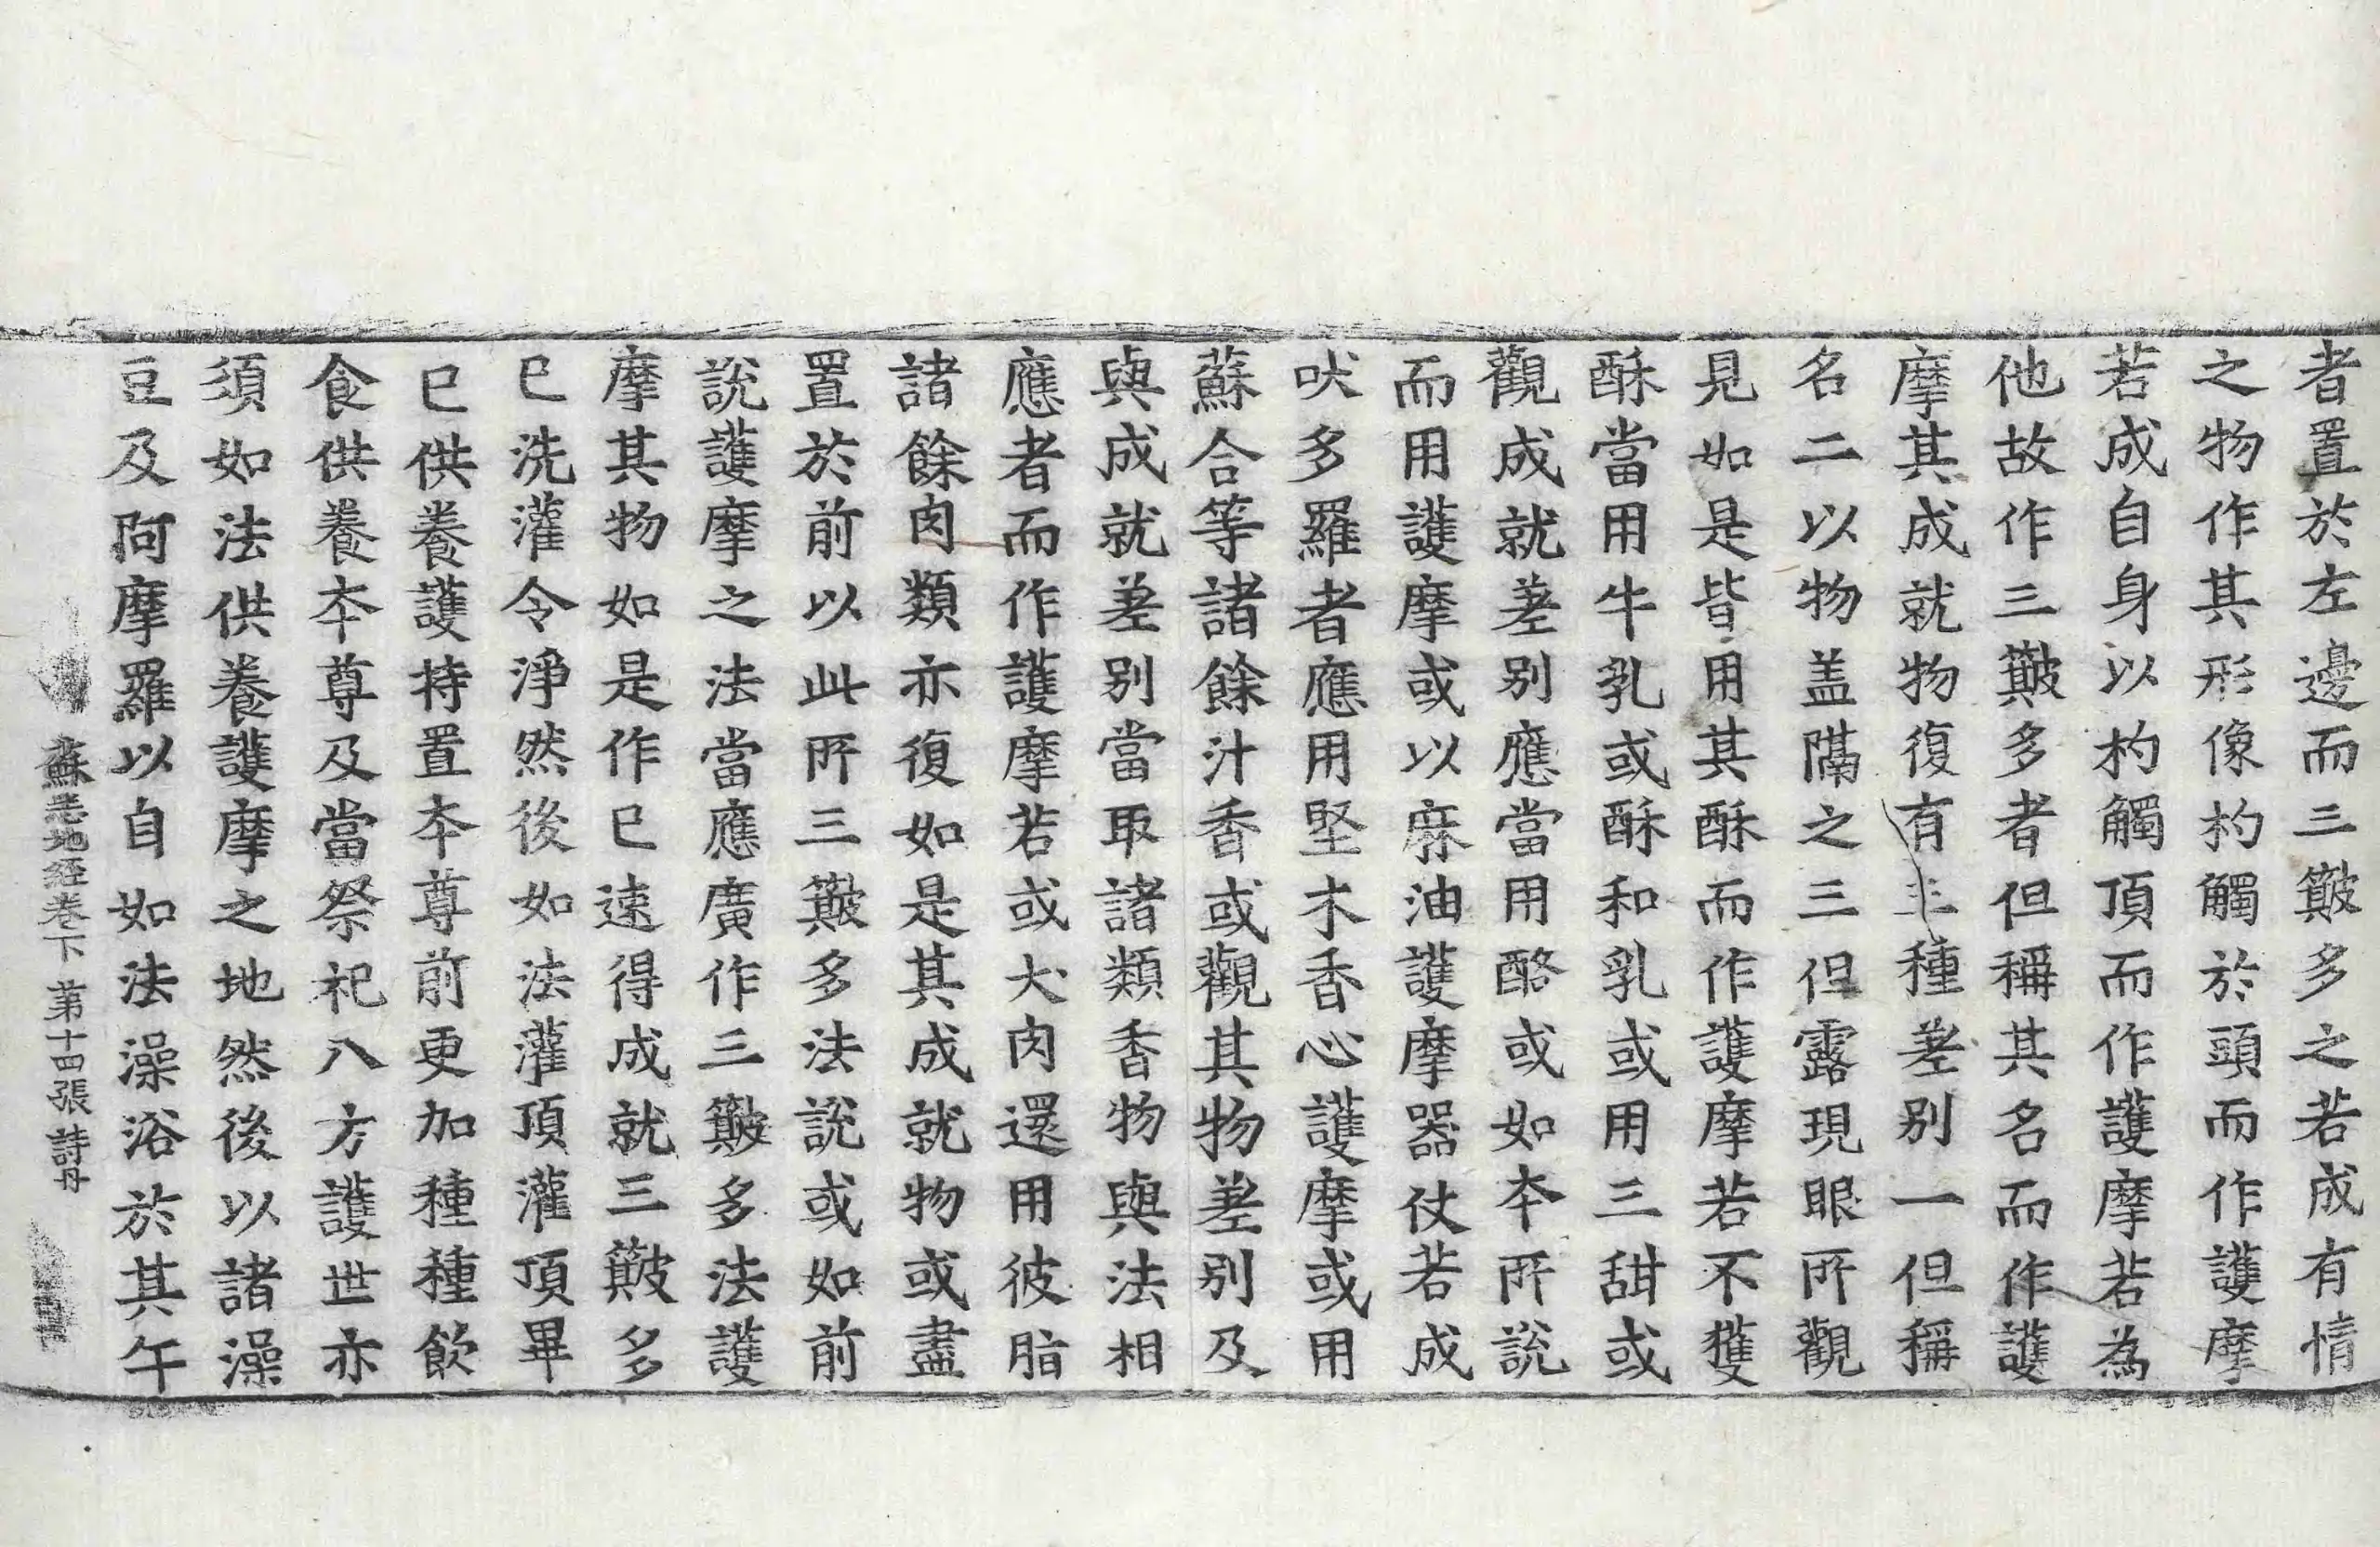 者置於左邊而三簸多之若成有情
之物作其形像杓觸於頭而作護摩
若成自身以杓觸頂而作護摩若為
他故作三簸多者但稱其名而作護
摩其成就物復有三種差別一但稱
名二以物盖隔之三但露現眼所觀
見如是皆用其酥而作護摩若不獲
酥當用牛乳或酥和乳或用三甜或
觀成就差別應當用酪或如本所說
而用護摩或以麻油護摩器仗若成
吠多羅者應用堅木香心護摩或用
蘇合等諸餘汁香或觀其物差別及
與成就差別當取諸類香物與法相
應者而作護摩若或犬肉還用彼脂
諸餘肉類亦復如是其成就物或盡
置於前以此所三簸多法說或如前
說護摩之法當應廣作三簸多法護
摩其物如是作已速得成就三簸多
已洗灌令淨然後如法灌頂灌頂畢
已供養護持置本尊前更加種種飲
食供養本尊及當祭祀八方護世亦
須如法供養護摩之地然後以諸澡
豆及阿摩羅以自如法澡浴於其午
蘇悉地經卷下 第十四張 詩丹